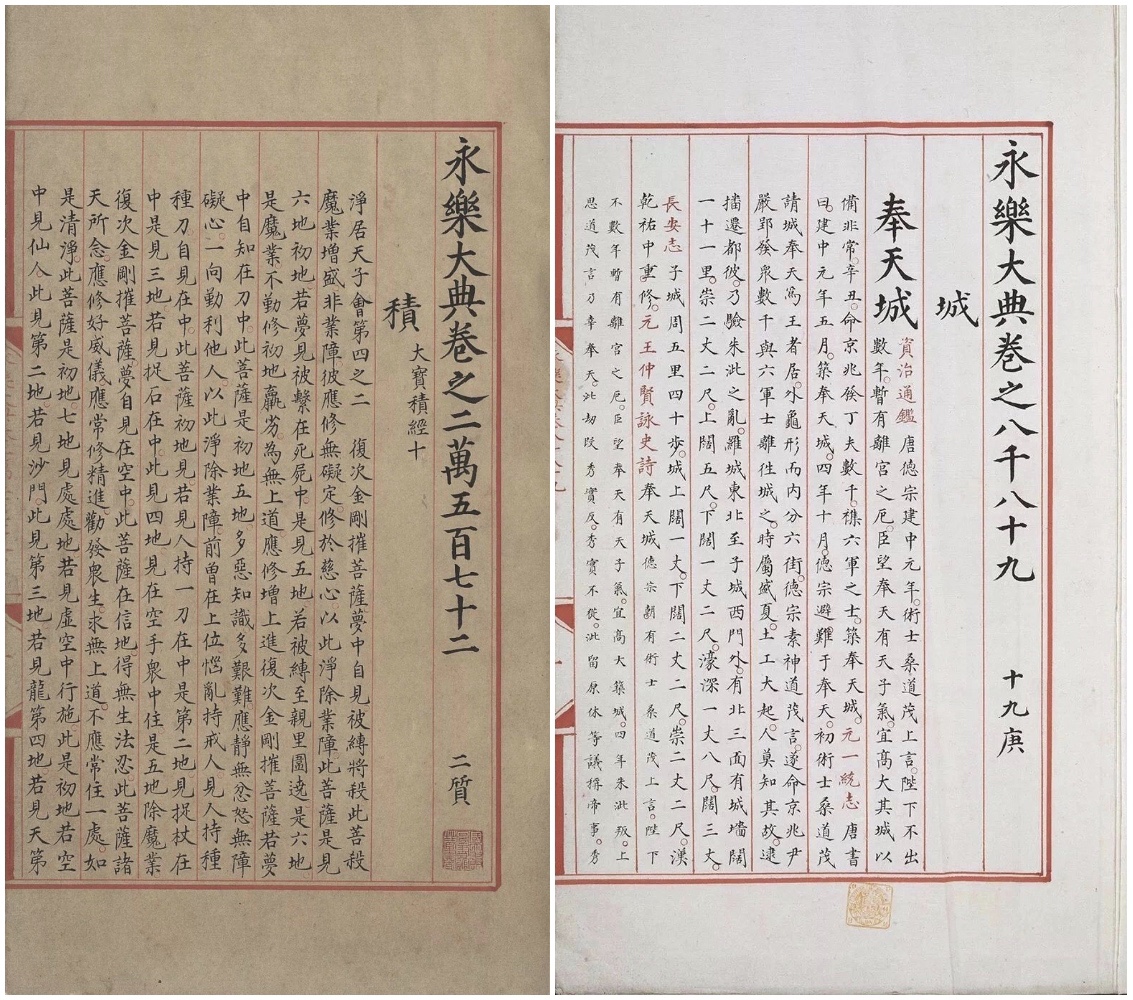 永樂大典卷之二萬五百七十二 二質
積 大寶積經十
淨居天子會第四之二 復次金剛摧菩薩夢中自見被縛將殺此菩殺
魔業增盛非業障彼應修無礙定。修於慈心以此淨除業障此菩薩是見
六地初地若夢見被繫在死屍中是見五地若被縛至親里圍遶是六地
是魔業不勤修初地羸劣。為無上道應修增上進復次金剛摧菩薩若夢
中自知在刀中。此菩薩是初地五地多惡知識多艱難應靜無忿怒無障
礙心。一向勤利他人。以此淨除業障前曾在上位惱亂持戒人見人持種
種刀自見在中。此菩薩初地見若見人持一刀在中是第二地見捉杖在
中是見三地若見捉石在中。此見四地見在空手衆中住是五地除魔業
復次金剛摧菩薩夢自見在空中。此菩薩在信地。得無生法忍此菩薩諸
天所念。應修好威儀應常修精進。勸發衆生。求無上道。不應常住一處。如
是清淨。此菩薩是初地。七地見處處地若見虛空中行施。此是初地若空
中見仙人此見第二地若見沙門。此見第三地若見龍第四地若見天第
永樂大典卷之八千八十九 十九庚
城
奉天城 資治通鑑唐德宗建中元年。術士桑道茂上言。陛下不出
數年。暫有離宮之厄。臣望奉天有天子氣。宜高大其城以
備非常。辛丑。命京兆發丁夫數千。襍六軍之士。築奉天城。元一統志唐書
曰。建中元年五月。築奉天城。四年十月。德宗避難于奉天。初術士桑道茂
請城奉天為王者居。外龜形而内分六街。德宗素神道茂言。遂命京兆尹
嚴郢發衆數千與六軍士離徃城之。時屬盛夏。土工大起。人莫知其故。逮
播遷都彼。乃驗朱泚之亂。羅城東北至子城西門外。有北三面有城墻闊
一十一里。崇二丈二尺。上闊五尺。下闊一丈二尺。濠深一丈八尺。闊三丈。
長安志子城周五里四十歩。城上闊一丈。下闊二丈二尺。崇二丈二尺。漢
乾祐中重修。元王仲賢詠史詩奉天城德宗朝有術士桑道茂上言。陛下
不數年暫有離宮之厄。臣望奉天有天子氣。宜高大築城。四年朱泚叛。上
思道茂言乃幸奉天。泚劫段秀實反。秀實不從。泚留原休等議稱帝事。秀